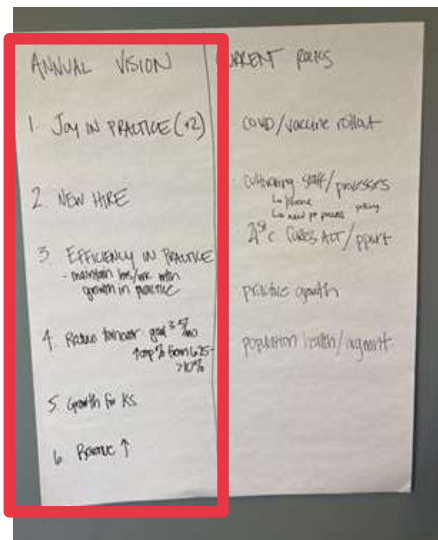 ANNUAL VISION
1. JOY IN PRACTICE (+2)
2. NEW HIRE
3. EFFICIENCY IN PRACTICE
- maintain hrs/wk
growth in practice
4. Reduce turnover goal
% from 6.25-
>10%
5. Growth for KS
6. Revenue ↑
CURRENT
COVID/vaccine rollout
cultivating staff/processes
↳ phone
↳ new pt process
21st C CURES ACT/
practice growth
population health/